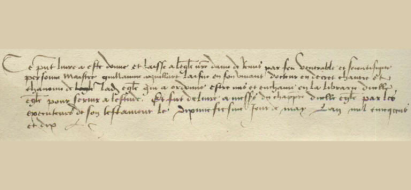 Ce pñt livre a este donne et laisse a legle nre dame de par feu venerable et scientifique
personne Maistre guillaume en son vivant docteur en decret chantre et
chanoine de lad egle qui a ordonne estre mis et enchaine en la librairie dicelle
egle pour servir a lestude. Et fut delivre a mess du chappre dicelle egle par les
executeurs de son testament le jour de may Lan mil cinq cens
et dix